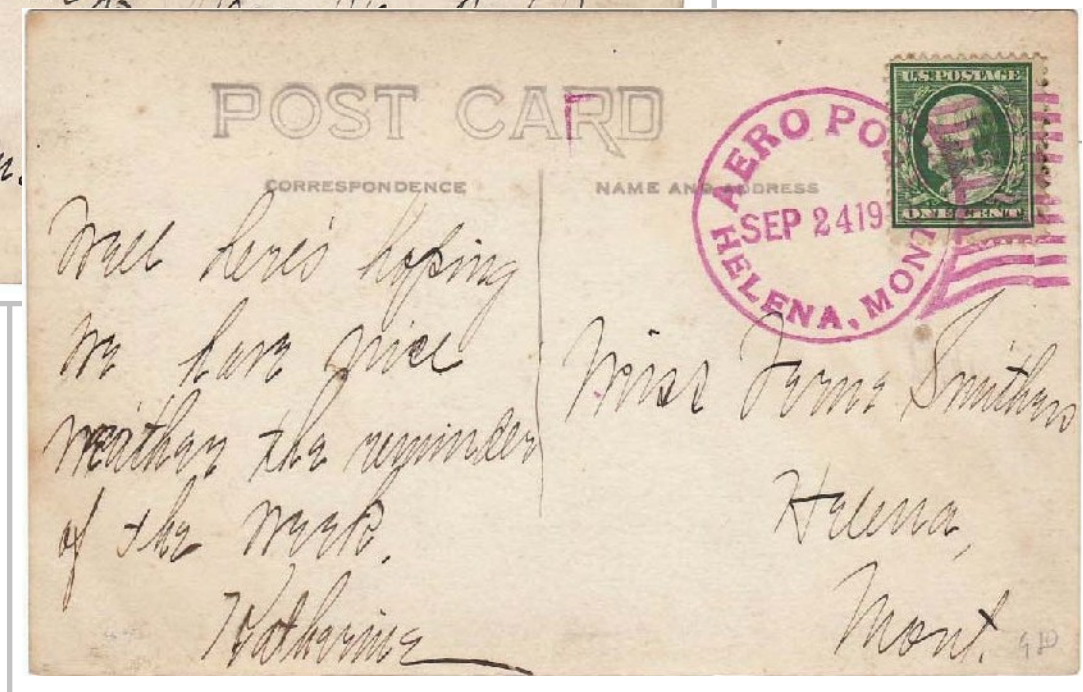 POST CARD
CORRESPONDENCE
NAME AND ADDRESS
AERO PO
SEP 24 19
HELENA, MONT
U.S. POSTAGE
ONE CENT
Well here's hoping
we have nice
weather the reminder
of the week.
Katherine
Miss Ferne Smithers
Helena,
Mont.